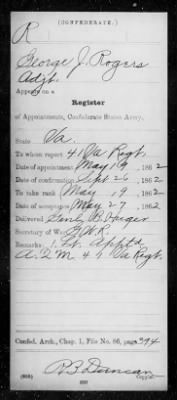 (CONFEDERATE.)
R
George J. Rogers
Adjt.
Appears on a
Register
of Appointments, Confederate States Army.
State Va.
To whom report 41 Va Regt.
Date of appointment May 19, 1862
Date of confirmation Sept 26, 1862
To take rank May 19, 1862
Date of acceptance May 27, 1862
Delivered Genl B Huger
Secretary of War G.W.R.
Remarks: 1 Lt. Appt'd
A.Q.M. 41 Va Regt.
Confed. Arch., Chap. 1, File No. 86, page 394
R B Duncan
Copyist.